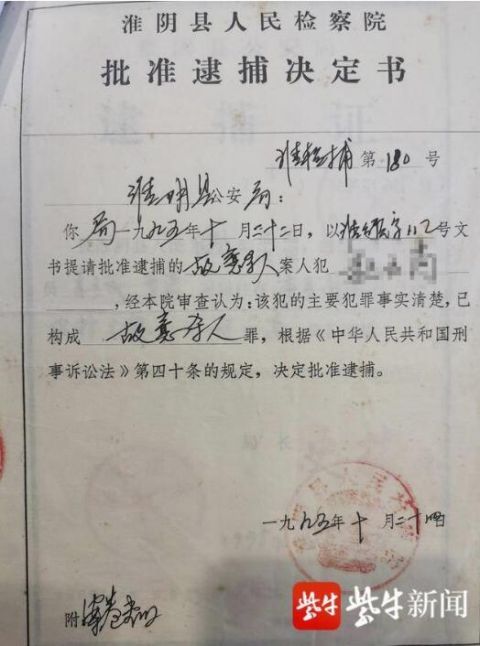 淮阴县人民检察院
批准逮捕决定书
淮检捕第180号
淮阴县公安局:
你局一九九五年十月二十二日,以淮 字112号文
书提请批准逮捕的故意杀人案人犯
,经本院审查认为:该犯的主要犯罪事实清楚,已
构成故意杀人罪,根据《中华人民共和国刑
事诉讼法》第四十条的规定,决定批准逮捕。
一九九五年十月二十四日
附
紫牛 紫牛新闻